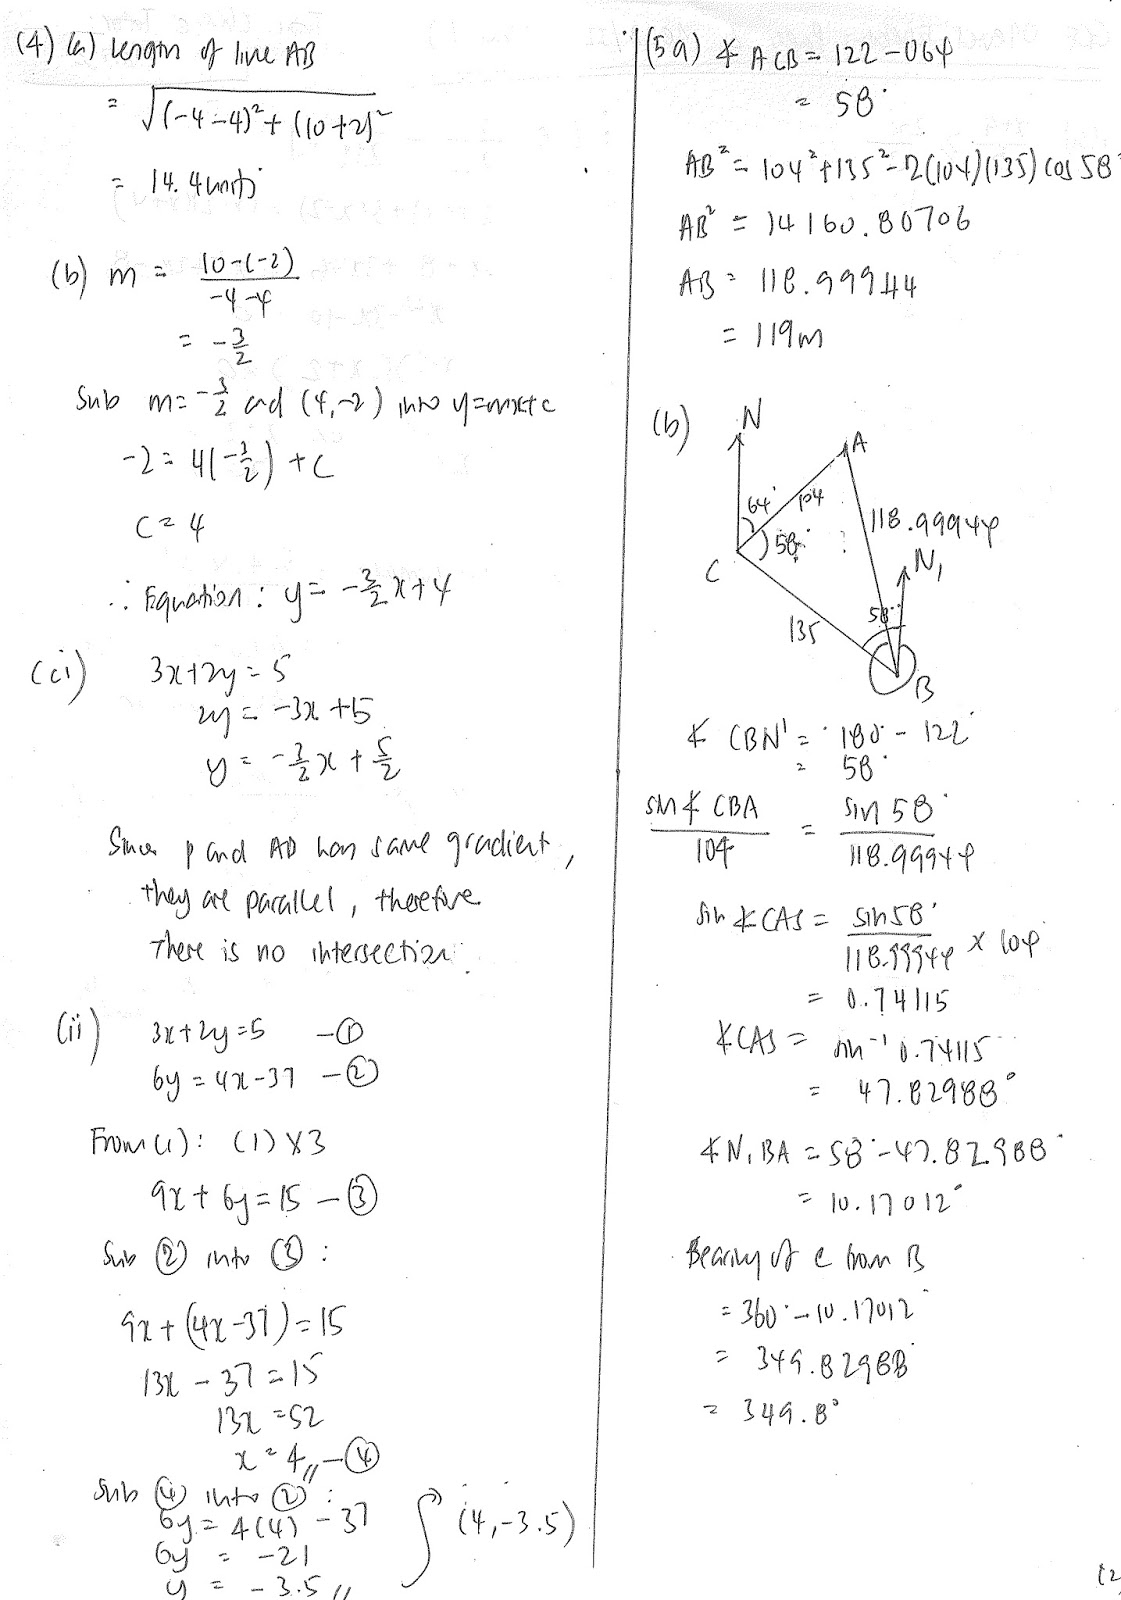 (4) (a) Length of line AB
= √((-4-4)² + (10+2)²)
= 14.4 units
(b) m = (10-(-2))/(-4-4)
= -3/2
Sub m = -3/2 and (4,-2) into y=mx+c
-2 = 4(-3/2) + c
c = 4
∴ Equation: y = -3/2x + 4
(ci) 3x+2y = 5
2y = -3x + 5
y = -3/2x + 5/2
Since p and AB has same gradient,
they are parallel, therefore
there is no intersection.
(ii) 3x+2y=5 -①
6y = 4x-37 -②
From (1): (1) X3
9x + 6y = 15 -③
Sub ② into ③:
9x + (4x-37) = 15
13x - 37 = 15
13x = 52
x = 4,, -④
Sub ④ into ②:
6y = 4(4) - 37
6y = -21
y = -3.5 ,,
(4, -3.5)
(5a) ∡ ACB = 122 - 064
= 58°
AB² = 104² + 135² - 2(104)(135) cos 58°
AB² = 14160.80706
AB = 118.99944
= 119m
(b)
N
A
64°
104
58°
118.99944
C
N₁
58°
135
B
∡ CBN' = 180° - 122°
= 58°
sin ∡ CBA / 104 = sin 58° / 118.99944
sin ∡ CAS = sin 58° / 118.99944 × 104
= 0.74115
∡ CAS = sin⁻¹ 0.74115
= 47.82988°
∡ N₁BA = 58° - 47.82988°
= 10.17012°
Bearing of C from B
= 360° - 10.17012°
= 349.82988°
= 349.8°
(2